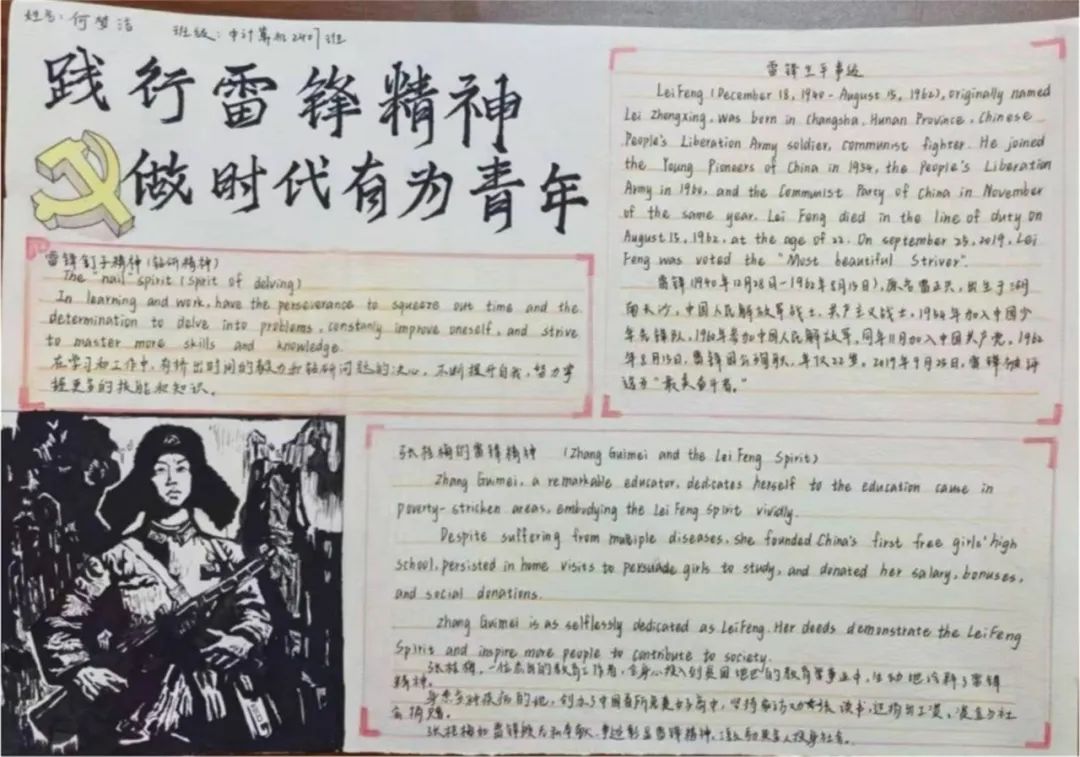 姓名:何梦洁
班级:中计算机2407班
践行雷锋精神
做时代有为青年
雷锋钉子精神(钻研精神)
The "nail" spirit (Spirit of delving)
In learning and work, have the perseverance to squeeze out time and the
determination to delve into problems, constanly improve oneself, and strive
to master more skills and knowledge.
在学习和工作中,有挤出时间的毅力和钻研问题的决心,不断提升自我,努力掌
握更多的技能和知识。
雷锋生平事迹
Lei Feng (December 18, 1940 - August 15, 1962), originally named
Lei Zhengxing, was born in Changsha, Hunan Province, Chinese
People's Liberation Army soldier, communist fighter. He joined
the Young Pioneers of China in 1954, the People's Liberation
Army in 1960, and the Communist Party of China in November
of the same year. Lei Feng died in the line of duty on
August 15, 1962, at the age of 22. On september 25, 2019, Lei
Feng was voted the "Most beautiful Striver".
雷锋(1940年12月28日-1962年8月15日),原名雷正兴,出生于湖
南长沙,中国人民解放军战士,共产主义战士,1954年加入中国少
年先锋队,1960年参加中国人民解放军,同年11月加入中国共产党。1962
年8月15日,雷锋因公殉职,年仅22岁。2019年9月25日,雷锋被评
选为"最美奋斗者。"
张桂梅的雷锋精神 (Zhang Guimei and the Lei Feng Spirit)
Zhang Guimei, a remarkable educator, dedicates herself to the education cause in
poverty-stricken areas, embodying the Lei Feng Spirit vividly.
Despite suffering from multiple diseases, she founded China's first free girls' high
school, persisted in home visits to persuade girls to study, and donated her salary, bonuses,
and social donations.
Zhang Guimei is as selflessly dedicated as Lei Feng. Her deeds demonstrate the Lei Feng
Spirit and inspire more people to contribute to society.
张桂梅,一位杰出的教育工作者,全身心投入到贫困地区的教育事业中,生动地诠释了雷锋
精神。
身患多种疾病的她,创办了中国首所免费女子高中,坚持家访劝女孩读书,还捐出工资、奖金与社
会捐赠。
张桂梅如雷锋般无私奉献,事迹彰显雷锋精神,激励更多人投身社会。